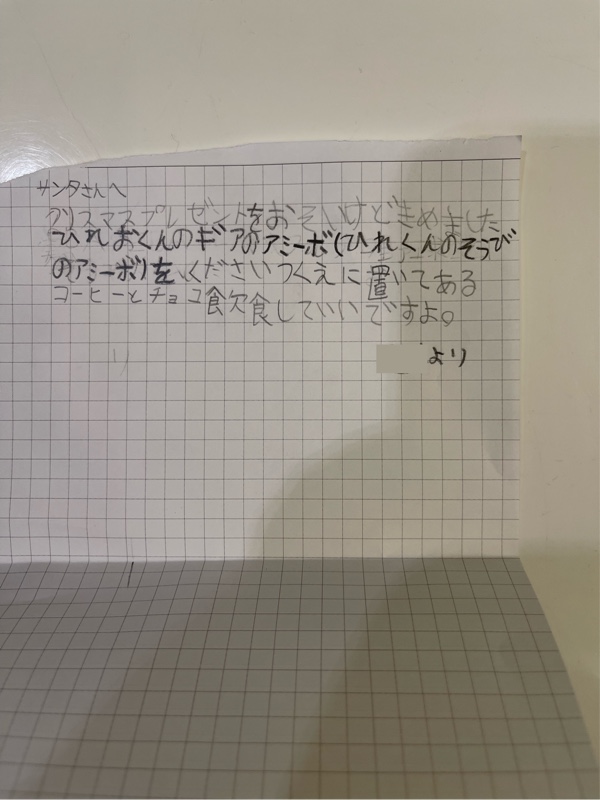 サンタさんへ
クリスマスプレゼントをおそいけどきめました
ひれおくんのギアのアミーボ(ひれくんのそうび
のアミーボ)をくださいつくえに置いてある
コーヒーとチョコ食欠食していいですよ。
より